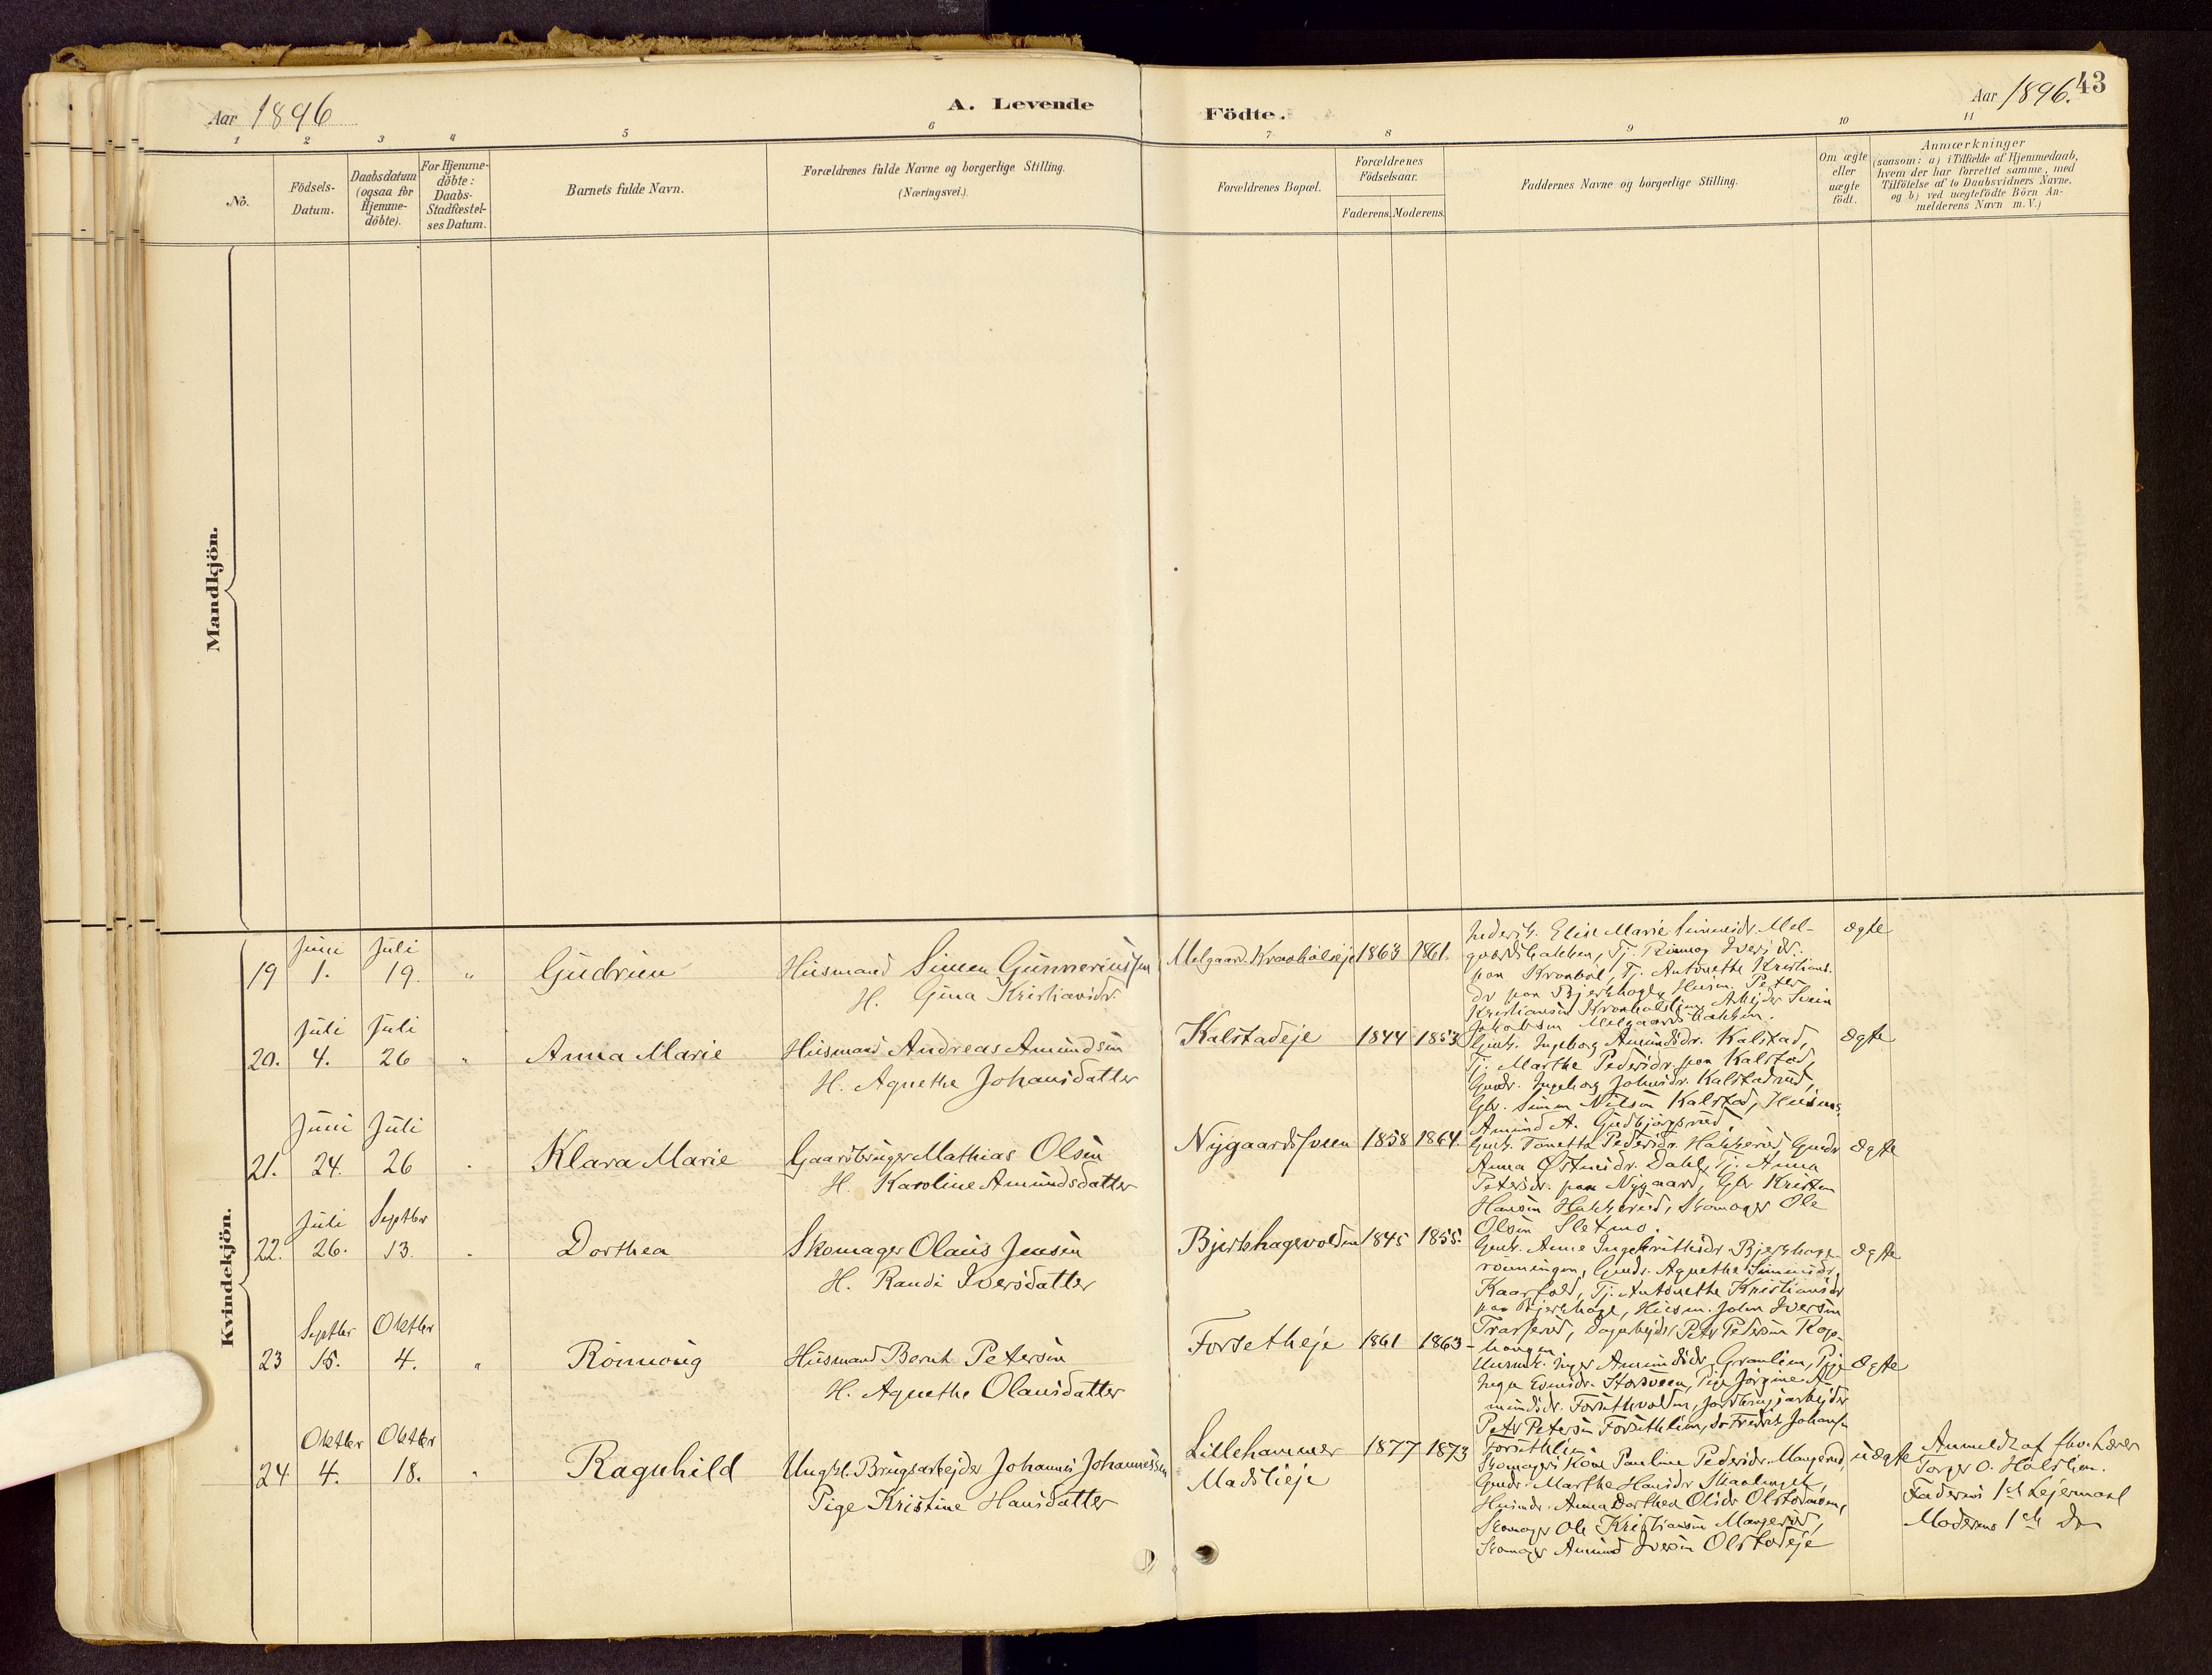 Aar 1896
A. Levende
Födte.
Aar 1896.
43
1 2 3 4 5 6 7 8 9 10 11
No.
Födsels-
Datum.
Daabsdatum
(ogsaa for
Hjemme-
döbte).
For Hjemme-
döbte:
Daabs-
Stadfæstel-
ses Datum.
Barnets fulde Navn.
Forældrenes fulde Navne og borgerlige Stilling.
(Næringsvei.)
Forældrenes Bopæl.
Forældrenes
Födselsaar.
Faderens. Moderens.
Faddernes Navne og borgerlige Stilling.
Om ægte
eller
uægte
födt.
Anmærkninger
(saasom: a) i Tilfælde af Hjemmedaab,
hvem der har forrettet samme, med
Tilföielse af to Daabsvidners Navne.
og b) ved uægtefödte Börn An-
melderens Navn m. V.)
Mandkjön.
Kvindekjön.
Juni Juli
19 1. 19. " Gudrun
Husmand Simen Gunneriussen
H. Gina Kristiansdr.
Melgaard-Kraabölseje 1863 1861.
Elise Marie Simensdr. Mel-
gaardsbakken, Tj. Rönnog Iversdr.
paa Kraaböl, Tj. Antonethe Kristians-
dr paa Bjerkhage, Husm. Peter
Kristiansen Arbejder Svein
Jakobsen Melgaardsbakken.
ægte
Juli Juli
20. 4. 26 " Anna Marie
Husmand Andreas Amundsen
H. Agnethe Johansdatter
Kalstadeje 1844 1853
Ingeborg Amundsdr. Kalstad,
Tj. Marthe Pedersdr. paa Kalstad,
Ingeborg Johnsdr. Kalstadrud,
Gbr. Simen Nilsen Kalstad, Husm.
Amund A. Gudbjørgsrud.
ægte
Juni Juli
21. 24. 26 " Klara Marie
Gaardbruger Mathias Olsen
H. Karoline Amundsdatter
Nygaardssveen 1858 1864.
Tonetta Pedersdr. Hakkerud,
Anna Østensdr. Dahl, Tj. Anna
Petersdr. paa Nygaard, Gbr Kristen
Hansen Hakkerud, Skomager Ole
Olsen Sletmo.
ægte
Juli Septbr
22. 26. 13. " Dorthea
Skomager Olaus Jensen
H. Randi Iversdatter
Bjerkhagevolden 1845 1855.
Anne Ingebrithsdr Bjerkhage-
rönningen, Agnethe Simensdr,
Tj. Antonethe Kristiansdr
paa Bjerkhage, Husm. John Iversen
Dagarbejder Petr Pedersen
ægte
Septbr Oktbr
23 15. 4. " Rönnoug
Husmand Bernt Petersen
H. Agnethe Olausdatter
Forsetheje 1861 1863
Inger Amundsdr. Granlien, Pige
Inga Evensdr. Storsveen, Pige Jörgine A-
mundsdr. Forsethvolden,
Petr Petersen Forsethlien, Fredrik Johansen
Forsethlien
ægte
Oktbr Oktbr
24 4. 18. " Ragnhild
Ungkl. Brugsarbejder Johannes Johannessen
Pige Kristine Hansdatter
Lillehammer
Madslieje
1877 1873
Skomagers Kone Pauline Pedersdr. Mangerud,
Marthe Hansdr
Anna Dorthea Olsdr
Skomager Ole Kristiansen Mangerud,
Skomager Amund Iversen Olstadeje
uægte
Anmeldt af
Torger O. Halslien.
Faderens 1ste Lejermaal
Moderens 1ste Do